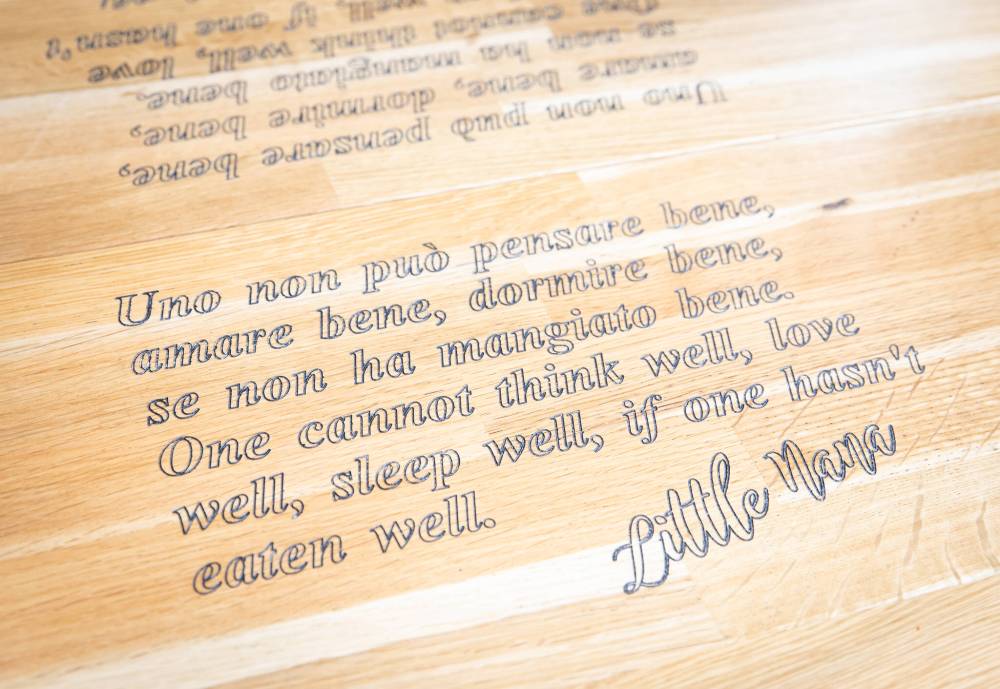 Uno non può pensare bene,
amare bene, dormire bene,
se non ha mangiato bene.
One cannot think well, love
well, sleep well, if one hasn't
eaten well.
Little Nana
Uno non può pensare bene,
amare bene, dormire bene,
se non ha mangiato bene.
One cannot think well, love
well, if one hasn't